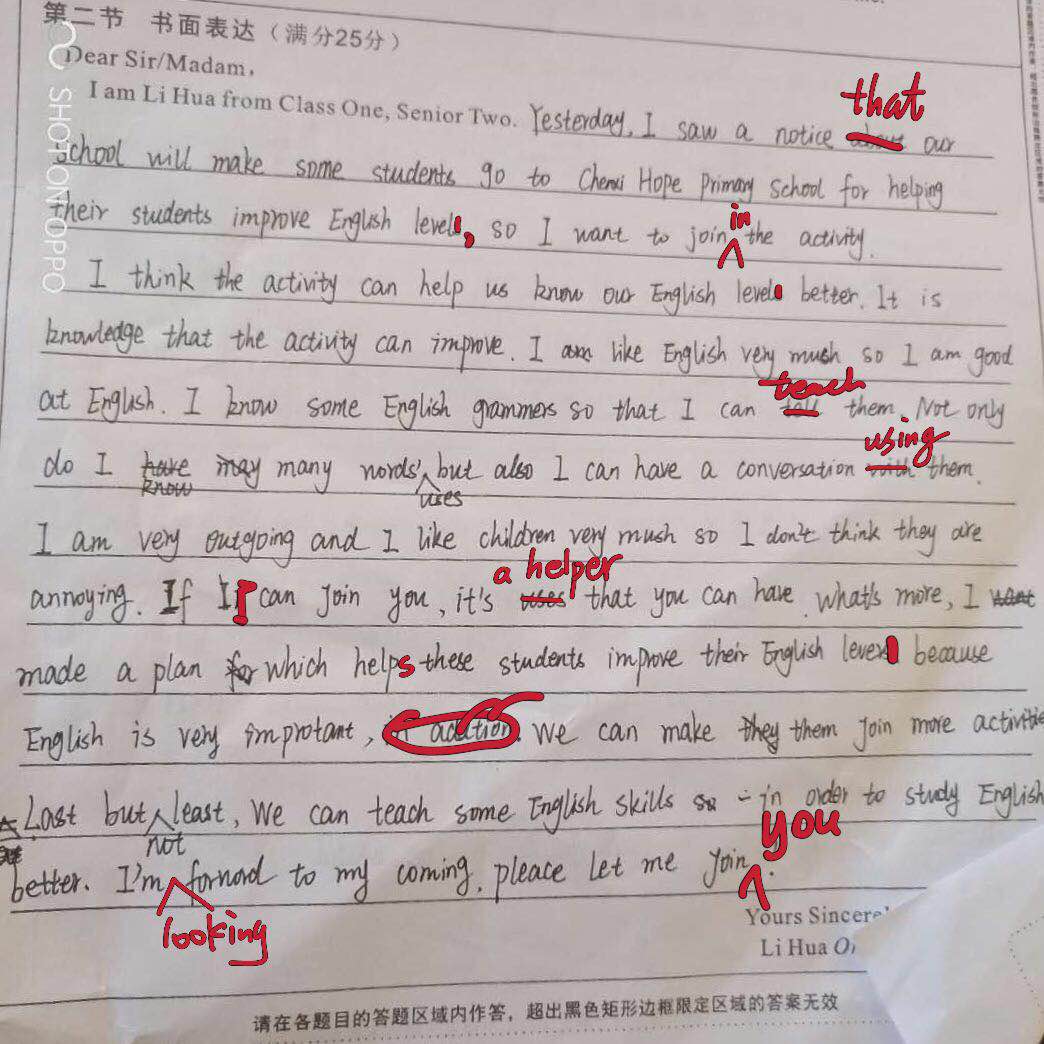 第二节 书面表达(满分25分)
Dear Sir/Madam,
I am Li Hua from Class One, Senior Two. Yesterday, I saw a notice about that our
school will make some students go to Chenxi Hope Primary School for helping
their students improve English level, so I want to join in the activity.
I think the activity can help us know our English level better. It is
knowledge that the activity can improve. I am like English very mush so I am good
at English. I know some English grammers so that I can tell teach them. Not only
do I have know may many words' uses, but also I can have a conversation with using them.
I am very outgoing and I like children very mush so I don't think they are
annoying. If I can join you, it's uses a helper that you can have. what's more, I want
made a plan for which helps these students improve their English level because
English is very improtant, in addition. We can make they them join more activitie
Last but not least, We can teach some English skills so - in order to study English
better. I'm looking forword to my coming. pleace let me join you.
Yours Sincerel
Li Hua
请在各题目的答题区域内作答,超出黑色矩形边框限定区域的答案无效
SHOT ON OPPO